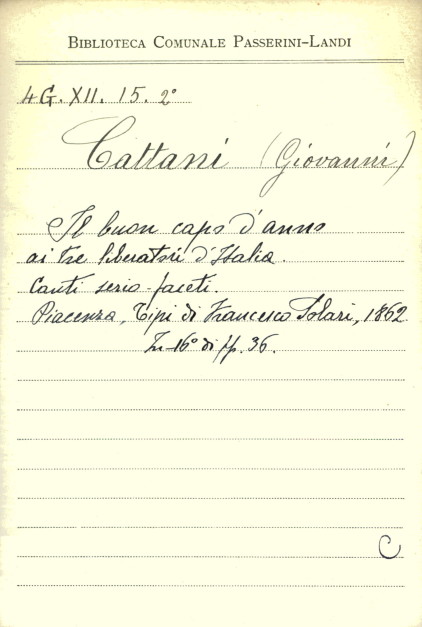 BIBLIOTECA COMUNALE PASSERINI-LANDI
4G. XII. 15. 2°
Cattani (Giovanni)
Il buon capo d'anno
ai tre liberatori d'Italia.
Canti serio-faceti.
Piacenza, Tipi di Francesco Solari, 1862
In-16° di pp. 36.
C